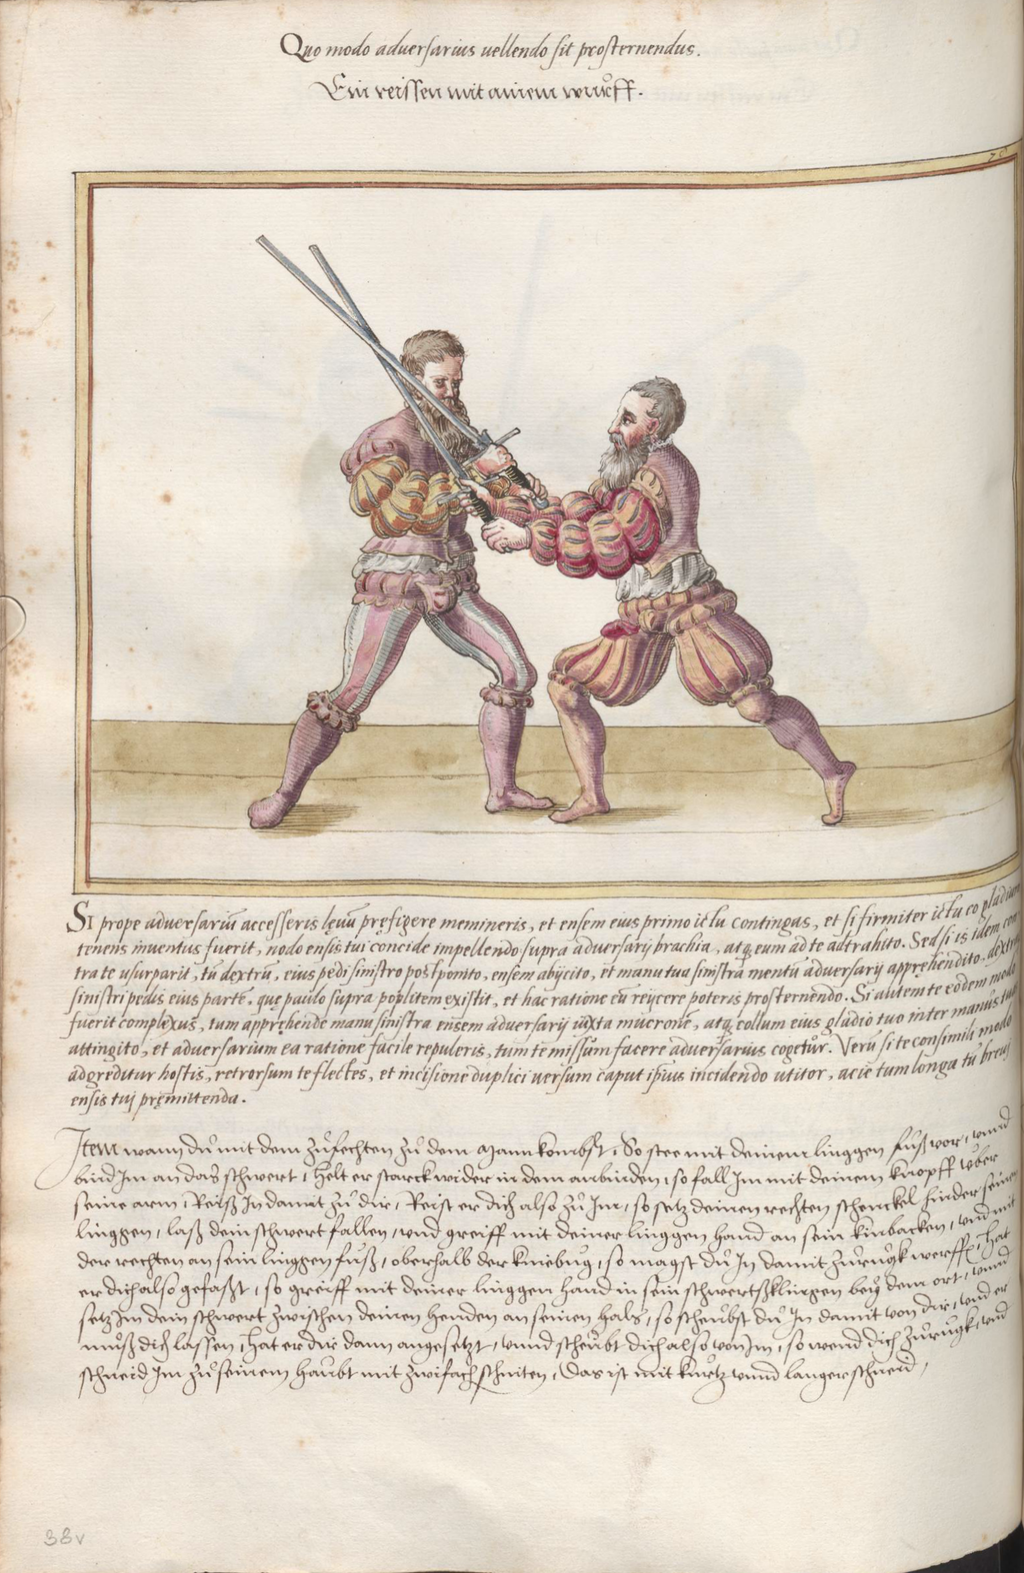 Quo modo adversarius vellendo sit prosternendus.
Ein reissen mit ainem wurff.
SI prope adversariũ accesseris lęvũ pręfigere memineris, et ensem eius primo ictu contingas, et si firmiter ictu eo gladium
tenens inventus fuerit, nodo ensis tui concide impellendo supra adversarij brachia, atq, eum ad te adtrahito. Sed si is idem con
tra te usurparit, tũ dextrũ, eius pedi sinistro postponito, ensem abijcito, et manu tua sinistra mentũ adversarij apprehendito, dextra
sinistri pedis eius partẽ, quę paulo supra poplitem existit, et hac ratione eũ reijcere poteris prosternendo. Si autem te eodem modo
fuerit complexus, tum appręhende manu sinistra ensem adversarij iuxta mucronẽ, atq, collum eius gladio tuo inter manus tuas
attingito, et adversarium ea ratione facile repuleris, tum te missum facere adversarius cogetur. Verũ si te consimili modo
adgreditur hostis, retrorsum te flectes, et incisione duplici versum caput ipsius incidendo utitor, acie tum longa tũ brevi
ensis tui pręmittenda.
Item wann du mit dem zufechten zu dem Mann kombst, So stee mit deinem linggen fuß vor, unnd
bind Im an das schwert, helt er starck wider in dem anbinden, so fall Im mit deinem knopff uber
seine arm, Reiß In damit zu dir, Reist er dich also zu Im, so setz deinen rechten schenckel hinder seinen
linggen, laß dein schwert fallen, und greiff mit deiner linggen hand an sein kinbacken, und mit
der rechten an sein linggen fuß, oberhalb der kniebug, so magst du In damit zurugk werffen, Hat
er dich also gefasst, so greiff mit deiner linggen hand in sein schwertsklingen bey dem ort, unnd
setz Im dein schwert zwischen deinen henden an seinen hals, so scheubst du In damit von dir, und er
muß dich lassen, Hat er dir dann angesetzt, unnd scheubt dich also von Im, so wend dich zurugk, und
schneid Im zu seinem haubt mit zwifach schniten, Das ist mit kurtz unnd langer schneid,
38v